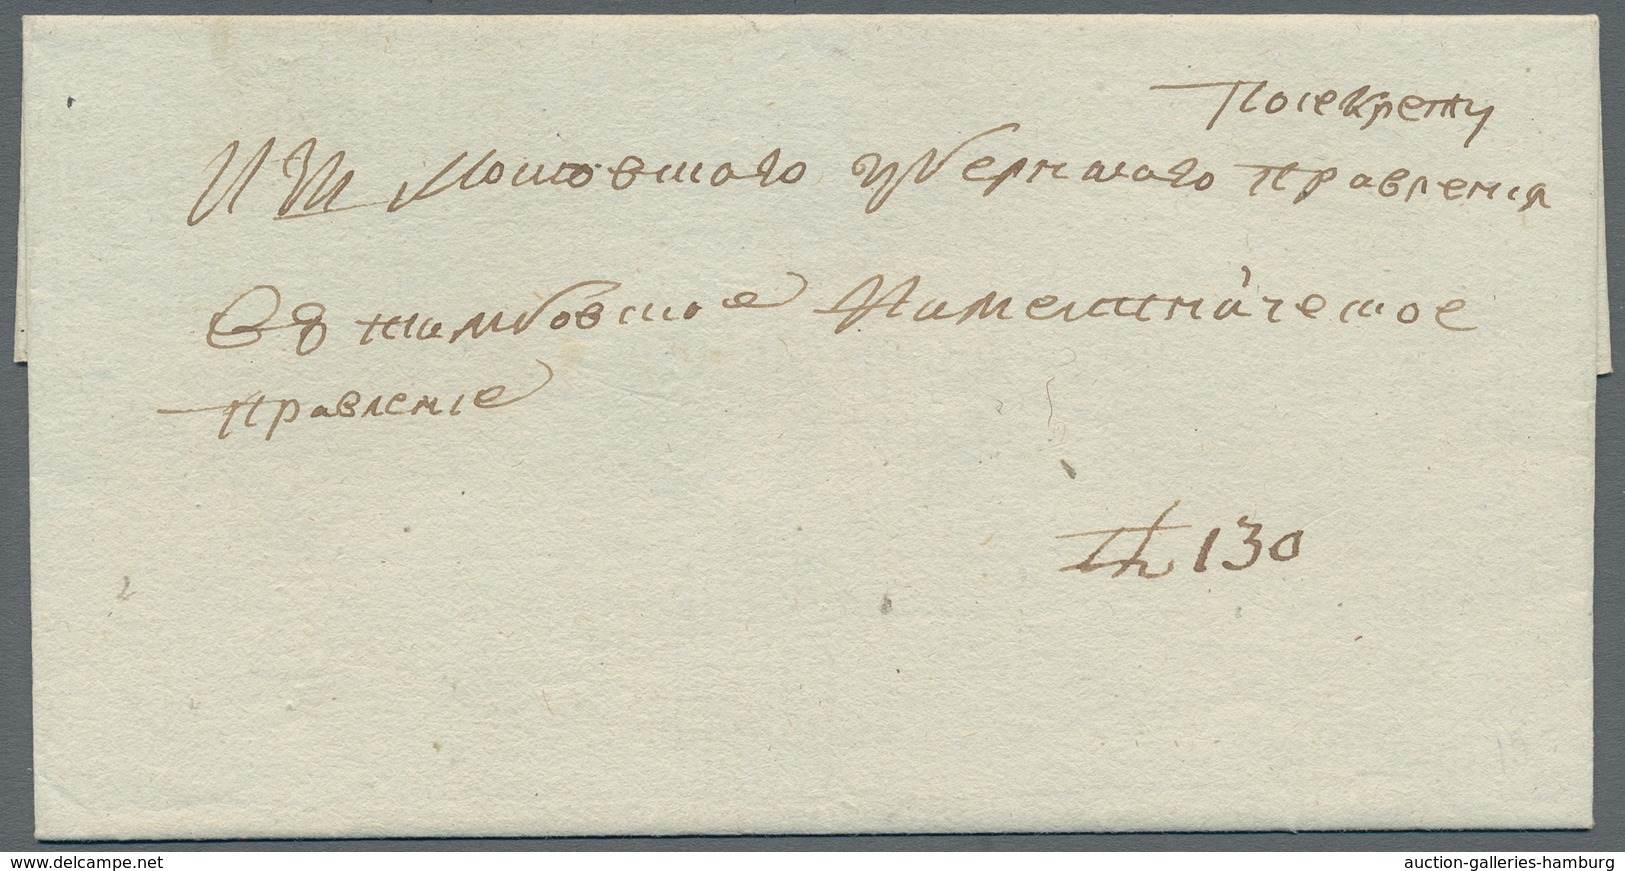 По секрету
Из Московскаго губернскаго правления
въ тамбовское Наместническое
правление
№ 130
www.delcampe.net
auction-galleries-hamburg